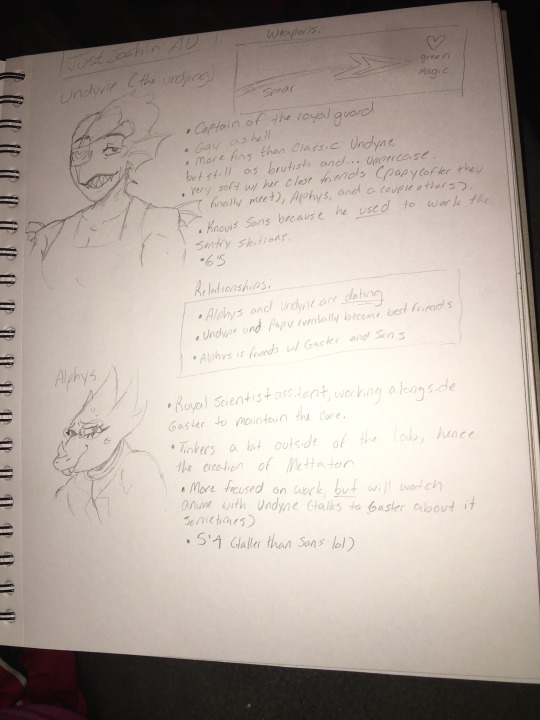 Just Joshin AU
Undyne (the undying)
Weapons:
Spear
green
magic
• Captain of the royal guard
• Gay as hell
• More fins than classic Undyne,
but still as brutish and... Uppercase.
• Very soft w/ her close friends (Papy (after they
finally meet), Alphys, and a couple others).
• Knows Sans because he used to work the
sentry stations.
• 6'5
Relationships:
• Alphys and Undyne are dating
• Undyne and Papy eventually become best friends
• Alphys is friends w/ Gaster and Sans
Alphys
• Royal Scientist assitent, working alongside
Gaster to maintain the core.
• Tinkers a bit outside of the lab, hence
the creation of Mettaton
• More focused on work, but will watch
anime with Undyne (talks to Gaster about it
sometimes)
• 5'4 (taller than Sans lol)